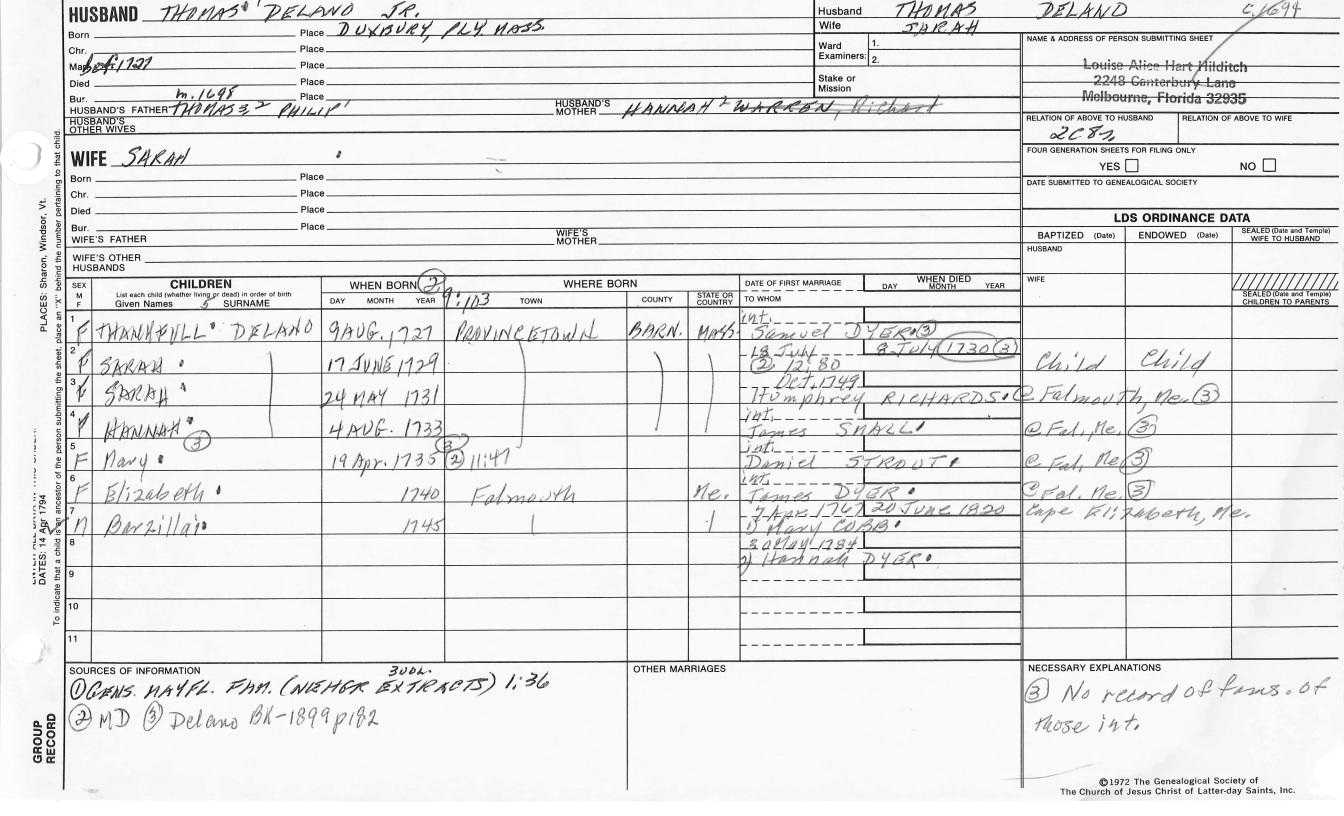 HUSBAND THOMAS DELANO JR.
Born Place DUXBURY, PLY MASS.
Chr. Place
Marr. bef. 1727 Place
Died Place
Bur. m. 1698 Place
HUSBAND'S FATHER THOMAS 3, 2 PHILIP 1
HUSBAND'S MOTHER HANNAH 2 WARREN, Richard
HUSBAND'S OTHER WIVES
WIFE SARAH
Born Place
Chr. Place
Died Place
Bur. Place
WIFE'S FATHER
WIFE'S MOTHER
WIFE'S OTHER HUSBANDS
Husband THOMAS DELAND C. 1694
Wife SARAH
Ward Examiners: 1.
2.
Stake or Mission
NAME & ADDRESS OF PERSON SUBMITTING SHEET
Louise Alice Hart Hilditch
2248 Canterbury Lane
Melbourne, Florida 32935
RELATION OF ABOVE TO HUSBAND
RELATION OF ABOVE TO WIFE
2C8r
FOUR GENERATION SHEETS FOR FILING ONLY
YES NO
DATE SUBMITTED TO GENEALOGICAL SOCIETY
LDS ORDINANCE DATA
BAPTIZED (Date) ENDOWED (Date) SEALED (Date and Temple) WIFE TO HUSBAND
HUSBAND
WIFE
SEALED (Date and Temple) CHILDREN TO PARENTS
SEX M F
CHILDREN
List each child (whether living or dead) in order of birth
Given Names SURNAME
WHEN BORN (2) 9:103
DAY MONTH YEAR
WHERE BORN
TOWN COUNTY STATE OR COUNTRY
DATE OF FIRST MARRIAGE
TO WHOM
WHEN DIED
DAY MONTH YEAR
1 F THANKFULL DELANO 9 AUG. 1727 PROVINCETOWN BARN. MASS. int. Samuel DYER (3)
2 F SARAH 17 JUNE 1729 18 July (2) 12:80 8 July 1730 (3) Child Child
3 F SARAH 24 MAY 1731 Oct. 1749 Humphrey RICHARDS @ Falmouth, Me. (3)
4 F HANNAH 4 AUG. 1733 int. James SMALL @ Fal., Me. (3)
5 F Mary (3) 19 Apr. 1735 (3) (2) 11:47 int. Daniel STROUT @ Fal, Me (3)
6 F Elizabeth 1740 Falmouth Me. int. James DYER @ Fal. Me. (3)
7 M Barzillai 1745 7 Apr. 1767 1) Mary COBB 20 June 1820 Cape Elizabeth, Me.
8 30 May 1784
2) Hannah DYER
9
10
11
SOURCES OF INFORMATION
3 VOL.
(1) GENS. MAYFL. FAM. (NEHGR EXTRACTS) 1:36
(2) MD (3) Delano BK-1899 p182
OTHER MARRIAGES
NECESSARY EXPLANATIONS
(3) No record of fams. of
those int.
©1972 The Genealogical Society of
The Church of Jesus Christ of Latter-day Saints, Inc.
PLACES: Sharon, Windsor, Vt.
DATES: 14 Apr 1794
To indicate that a child is an ancestor of the person submitting the sheet, place an "X" behind the number pertaining to that child.
GROUP RECORD